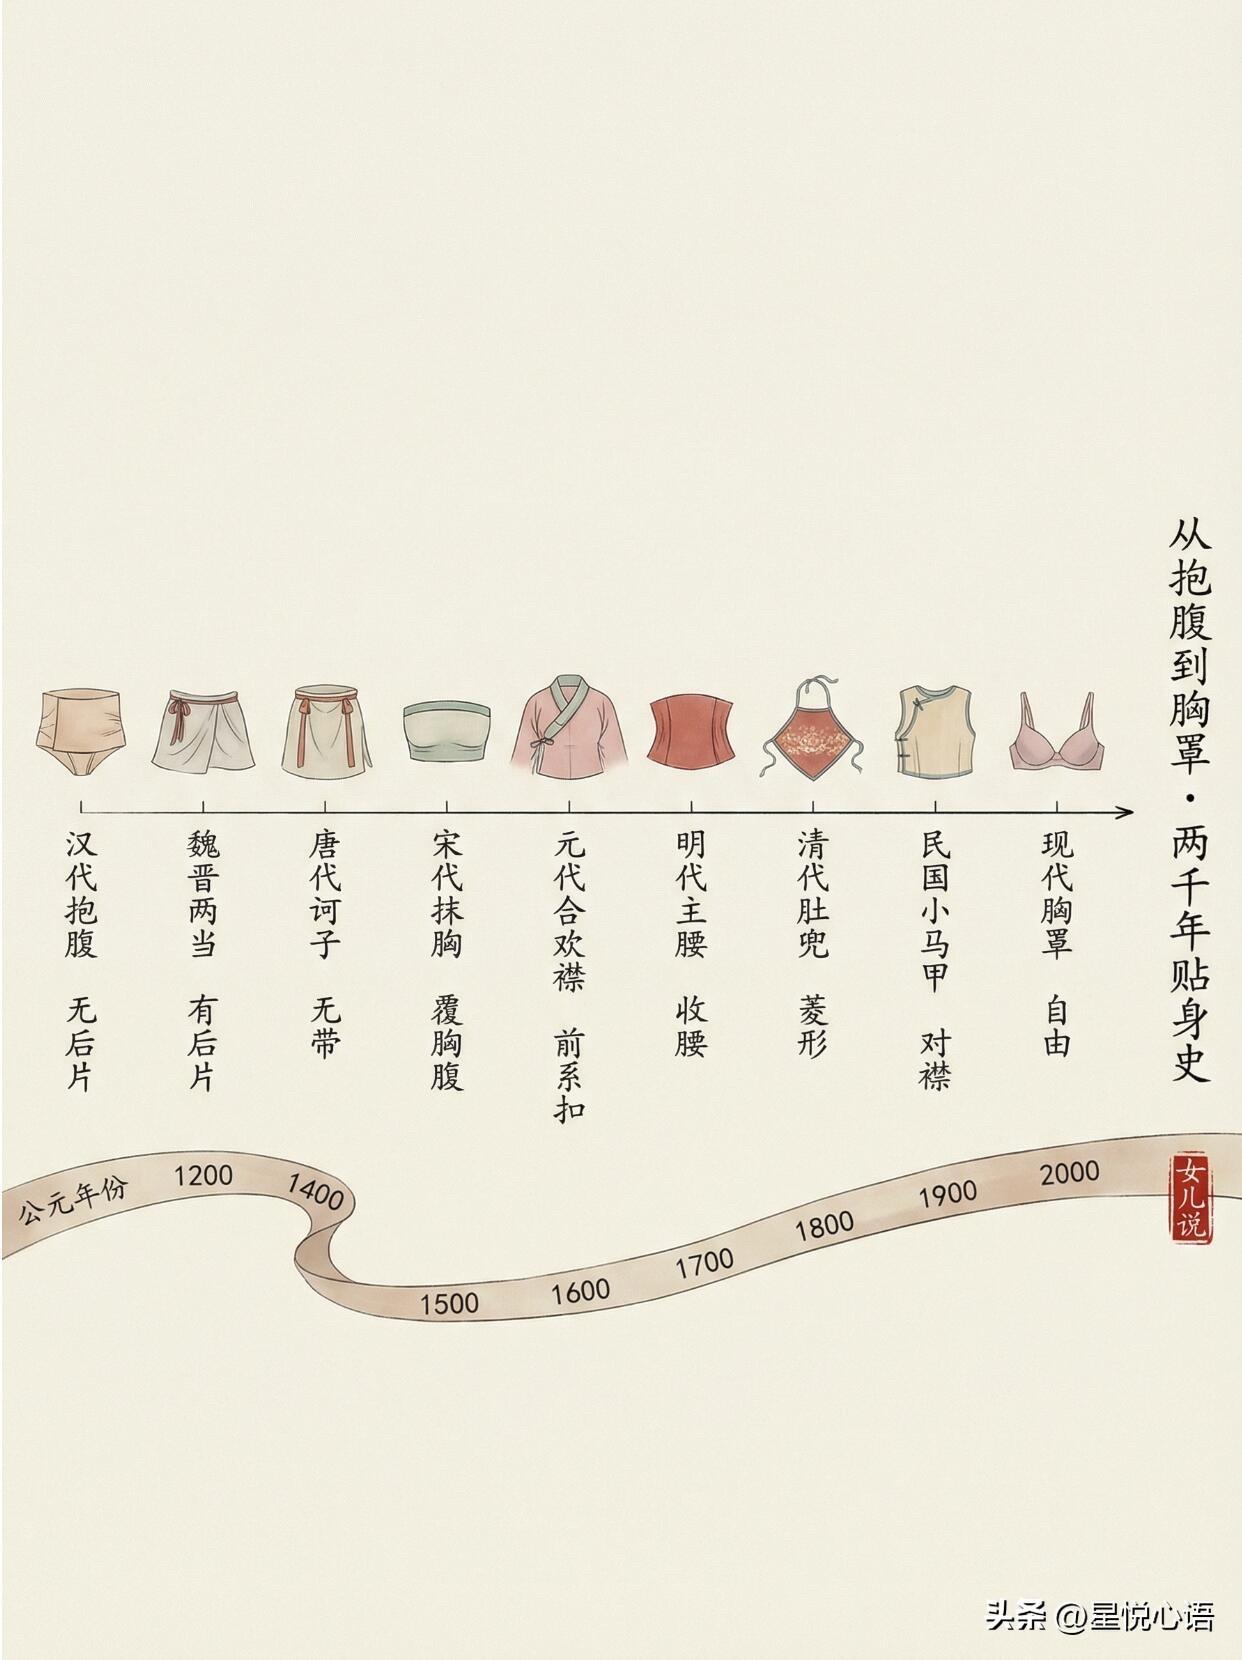 从抱腹到胸罩·两千年贴身史
女儿说
汉代抱腹 无后片
魏晋两当 有后片
唐代诃子 无带
宋代抹胸 覆胸腹
元代合欢襟 前系扣
明代主腰 收腰
清代肚兜 菱形
民国小马甲 对襟
现代胸罩 自由
公元年份 1200 1400 1500 1600 1700 1800 1900 2000
头条 @星悦心语